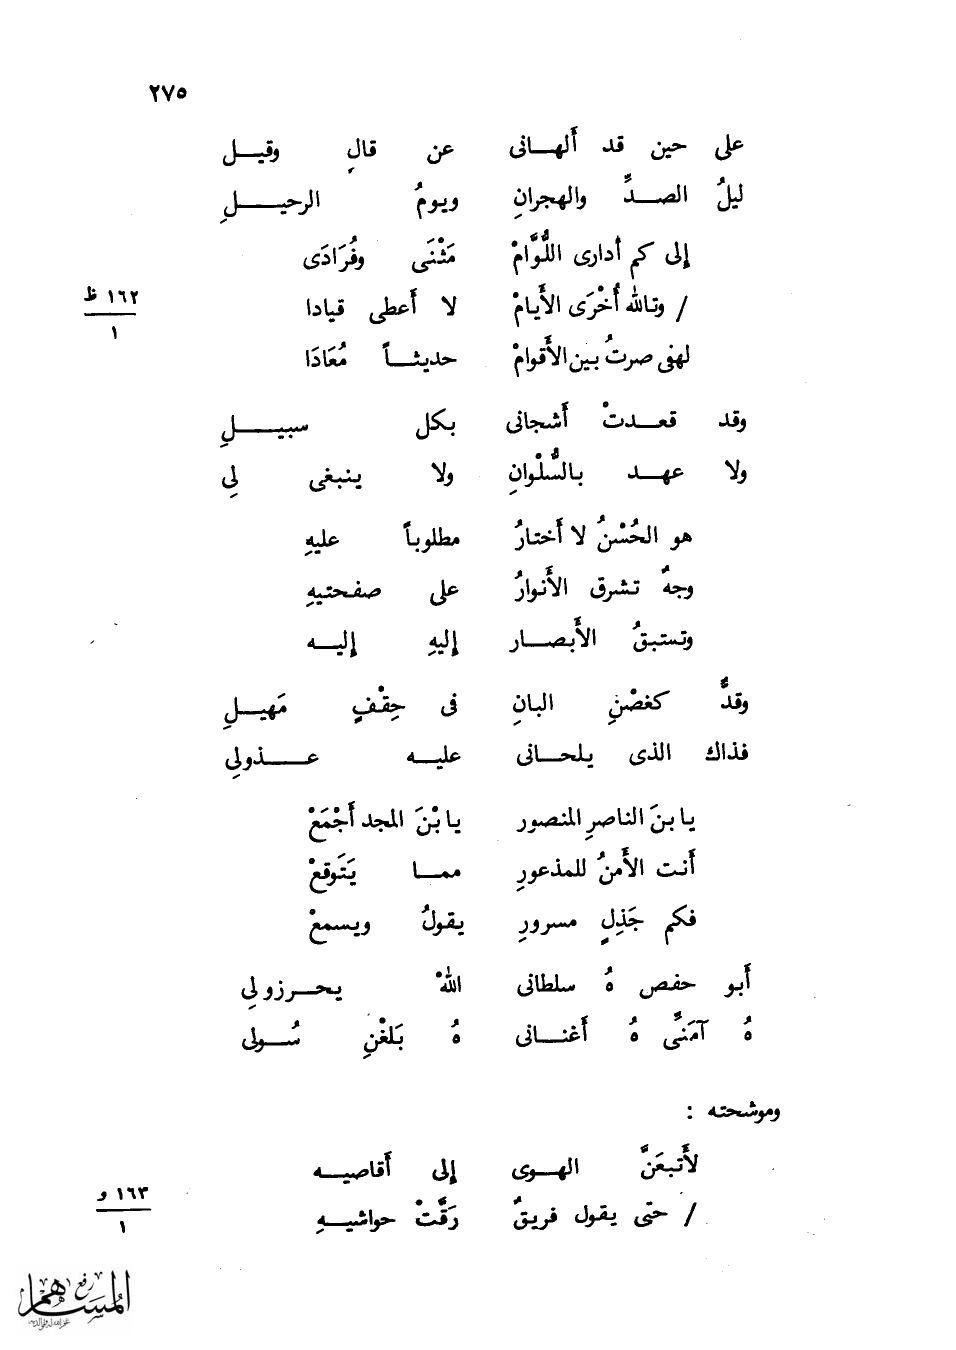 ٢٧٥
على حين قد أَلهانى عن قالٍ وقيل
ليلُ الصدِّ والهجرانِ ويومُ الرحيلِ
إلى كم أدارى اللُّوَّامْ مَثْنَى وفُرَادَى
١٦٢ ظ
/ وتالله أُخْرَى الأَيامْ لا أَعطى قيادا
١
لهفى صرتُ بين الأَقوامْ حديثاً مُعَادَا
وقد قعدتْ أَشجانى بكل سبيلِ
ولا عهد بالسُّلْوانِ ولا ينبغى لِى
هو الحُسْنُ لا أَختارُ مطلوباً عليهِ
وجهٌ تشرق الأَنوارُ على صفحتيهِ
وتستبقُ الأَبصار إِليهِ إِليه
وقدٌّ كغصْنِ البانِ فى حِقْفٍ مَهيلِ
فذاك الذى يلحانى عليه عذولِى
يا بنَ الناصرِ المنصور يا بْنَ المجد أَجْمَعْ
أَنت الأَمنُ للمذعورِ مما يَتَوقعْ
فكم جَذِلٍ مسرورِ يقولُ ويسمعْ
أَبو حفص هُ سلطانى اللهْ يحرزولِى
هُ آمَنِّى هُ أَغنانى هُ بَلغْنِ سُولى
وموشحته :
لأَتبعَنَّ الهوى إلى أَقاصيه
١٦٣ و
/ حتى يقول فريقٌ رَقَّتْ حواشيهِ
١
رفع
المساهم